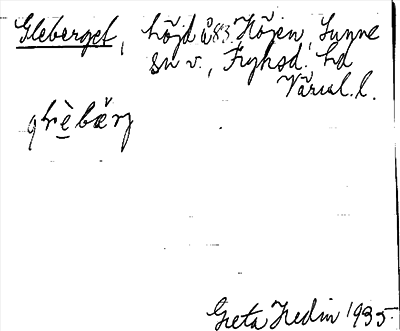 Gleberget, höjd å 83 Höjen, Sunne
sn v., Fryksd. hd
Värml. l.
Greta Hedin 1935.